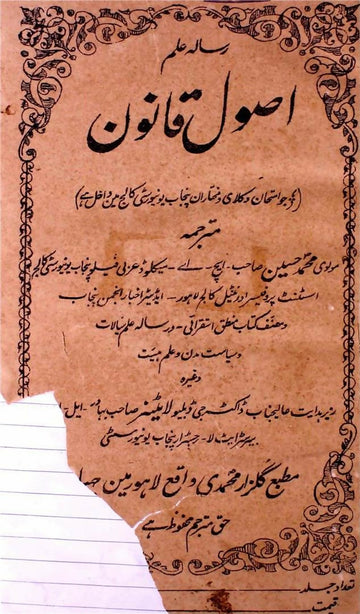 رسالہ علم
اصول قانون
(جو امتحان وکلای و مختاران پنجاب یونیورسٹی کالج مین داخل ہے)
مترجمہ
مولوی محمد حسین صاحب - ایچ - اے - میکلوڈ عربی فیلو پنجاب یونیورسٹی کالج
اسٹنٹ پروفیسر اورینٹیل کالج لاہور - ایڈیٹر اخبار انجمن پنجاب
و مصنف کتاب منطق استقرائی - و رسالہ علم
و سیاست مدن و علم ہیئت
وغیرہ
زیر ہدایت عالیجناب ڈاکٹر جی ڈبلیو لایٹنر صاحب بہادر - ایل
بیرسٹر ایٹ لا - رجسٹرار پنجاب یونیورسٹی
مطبع گلزار محمدی واقع لاہور مین
حق مترجم محفوظ ہے
تعداد جلد
قیمت